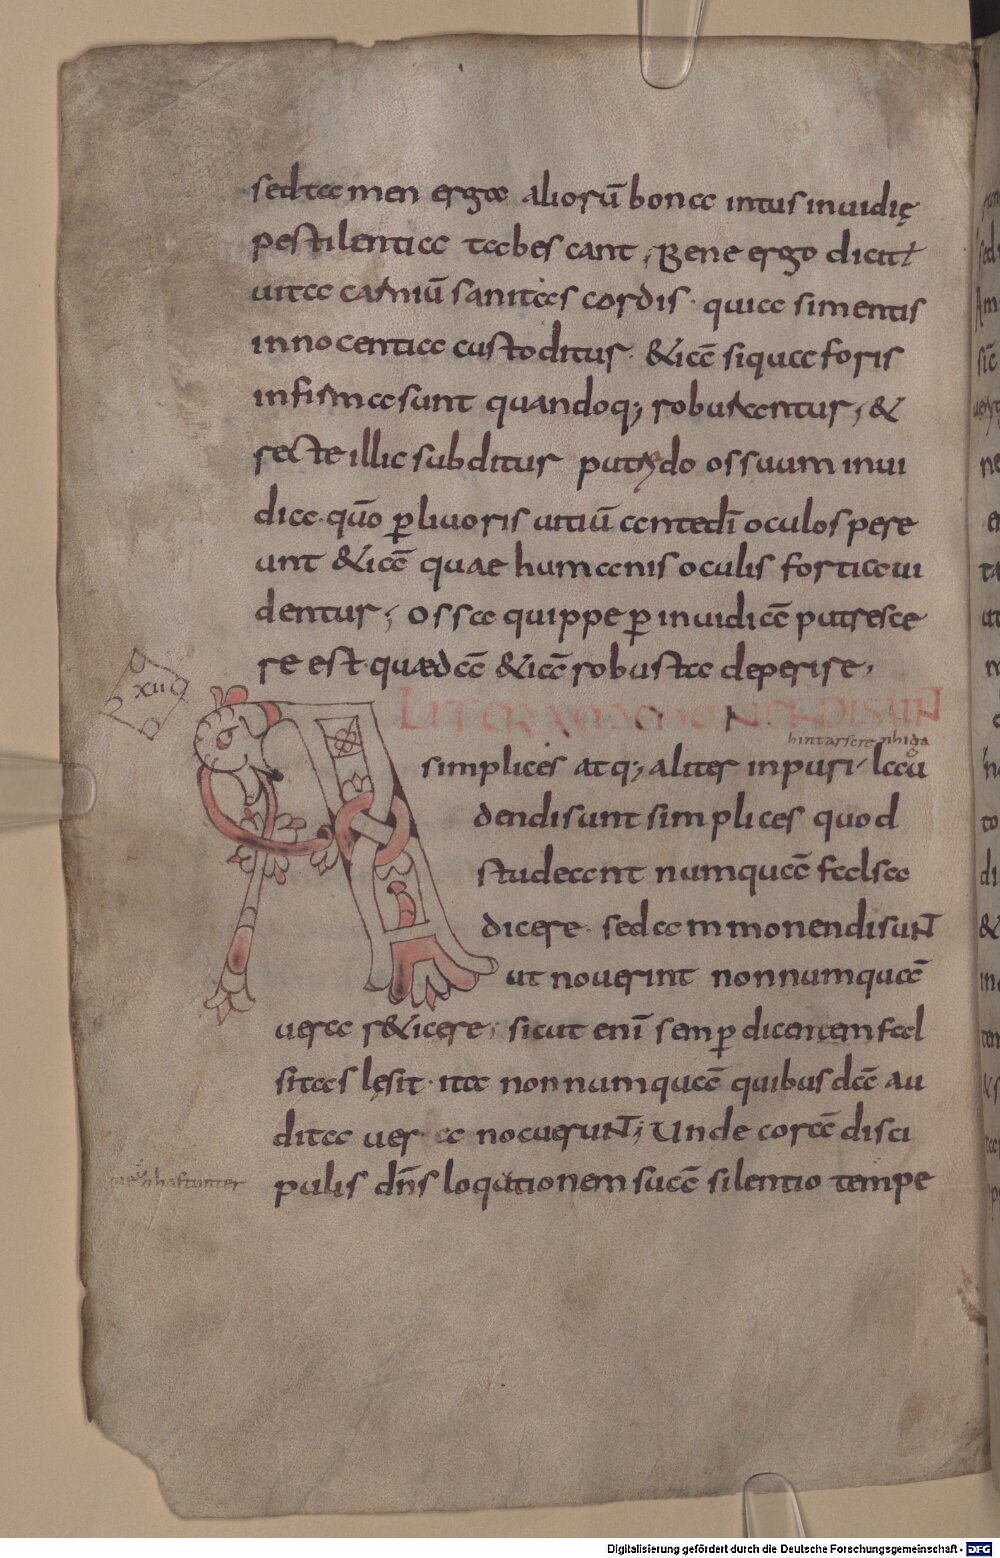 sed tamen ergæ aliorū bona intus inuidię
pestilentia tabescant; Bene ergo dicit᷒
uita carniū sanitas cordis· quia si mentis
innocentia custoditur· &iā siqua foris
infirma sunt quandoq; robustantur; &
recte illic subditur putredo ossuum inui
dia· quō ꝑ liuoris uitiū ante dī oculos pere
unt &iā quae humanis oculis fortia ui
dentur; Ossa quippe ꝑ inuidiā putresce
re est· quædā &iā robusta deperire;
XII
ALITER AMMONENDI SUNT
hintarscrenhiga
simplices atq; aliter inpuri· lau
dendi sunt simplices quod
studeant numquā falsa
dicere· sed ammonendi sunt
ut nouerint nonnumquā
uera r&icere; sicut enī semꝑ dicentem fal
sitas lęsit· ita nonnumquā quibusdā au
dita uera nocuerunt; Unde corā disci
pulis dn̄s loqutionem suā silentio tempe